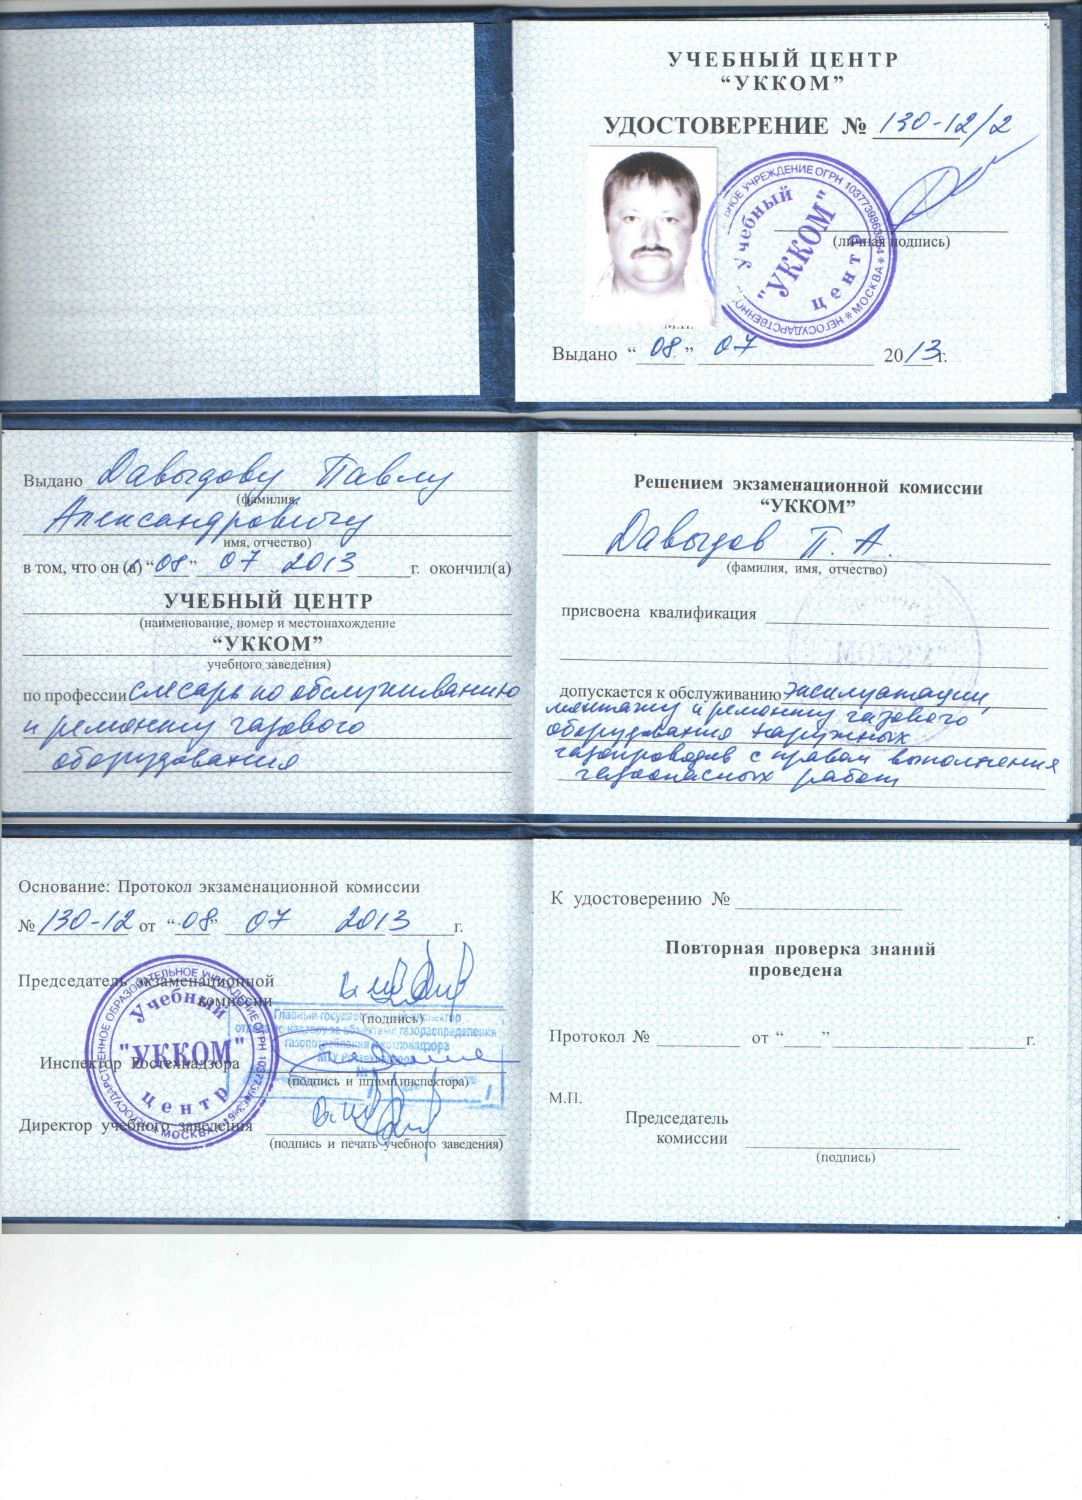 УЧЕБНЫЙ ЦЕНТР
“УККОМ”
УДОСТОВЕРЕНИЕ № 130-12/2
НЕГОСУДАРСТВЕННО ЬНОЕ УЧРЕЖДЕНИЕ ОГРН * МОСКВА *
Учебный
"УККОМ"
центр
(личная подпись)
М.П.
Выдано “08” 07 2013г.
Выдано Давыдову Павлу
(фамилия,
Александровичу
имя, отчество)
в том, что он (а) “08” 07 2013 г. окончил(а)
УЧЕБНЫЙ ЦЕНТР
(наименование, номер и местонахождение
“УККОМ”
учебного заведения)
по профессии слесарь по обслуживанию
и ремонту газового
оборудования
Решением экзаменационной комиссии
“УККОМ”
Давыдов П. А.
(фамилия, имя, отчество)
присвоена квалификация
допускается к обслуживанию эксплуатации,
монтажу и ремонту газового
оборудования наружных
газопроводов с правом выполнения
газоопасных работ
Основание: Протокол экзаменационной комиссии
№ 130-12 от “08” 07 2013 г.
Председатель экзаменационной
комиссии
(подпись)
Главный государственный инспектор
отдела по надзору за объектами газораспределения
Инспектор Ростехнадзора
(подпись и штамп инспектора)
Директор учебного заведения
(подпись и печать учебного заведения)
НЕГОСУДАРСТВЕННОЕ ОБРАЗОВАТЕЛЬНОЕ УЧРЕЖДЕНИЕ ОГРН * МОСКВА *
Учебный
"УККОМ"
центр
К удостоверению №
Повторная проверка знаний
проведена
Протокол № от “ ” г.
М.П.
Председатель
комиссии
(подпись)